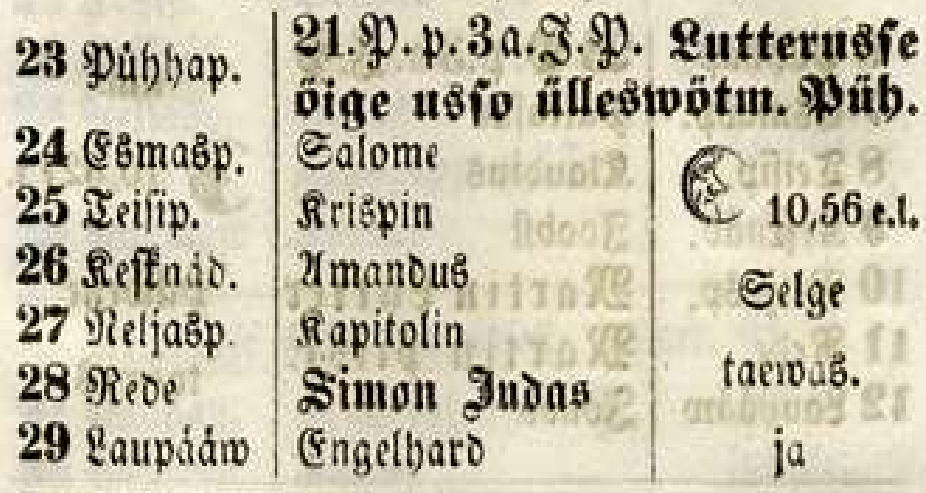 23 Pühhap. 21. P. p. 3 a. J. P. Lutterusse
öige usso ülleswötm. Püh.
24 Esmasp. Salome
25 Teisip. Krispin 10,56 e.l.
26 Keſknäd. Amandus Selge
27 Neljasp. Kapitolin
28 Rede Simon Judas taewas.
29 Laupääw Engelhard ja